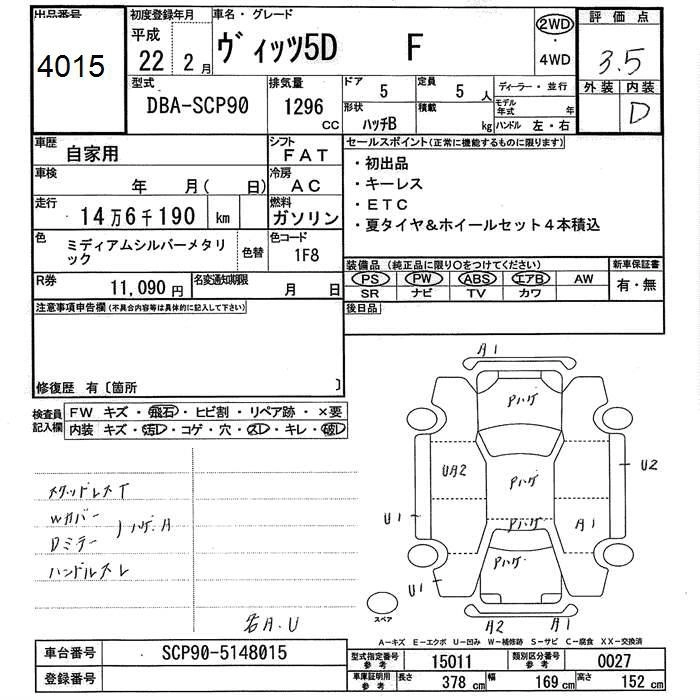 出品番号 初度登録年月 車名・グレード 評価点
4015 平成 22 2月 ヴィッツ5D F 2WD ・ 4WD 3.5
型式 排気量 ドア 定員 ディーラー・並行 外装 内装
DBA-SCP90 1296 CC 5 5人 モデル年式 年 D
形状 ハッチB 積載 kg ハンドル 左・右
車歴 自家用 シフト FAT セールスポイント(正常に機能するものに限ります)
車検 年 月( 日) 冷房 AC ・初出品
・キーレス
走行 14万6千190 km 燃料 ガソリン ・ETC
・夏タイヤ&ホイールセット4本積込
色 ミディアムシルバーメタリック 色替 色コード 1F8
装備品(純正品に限り○をつけてください) 新車保証書
R券 11,090円 名変通知期限 月 日 PS PW ABS エアB AW 有・無
SR ナビ TV カワ
注意事項申告欄(不具合内容等は具体的に記入して下さい) 後日品
修復歴 有〔箇所 〕
検査員記入欄 FW キズ・飛石・ヒビ割・リペア跡・×要
内装 キズ・汚レ・コゲ・穴・スレ・キレ・破レ
スタッドレスT
Wカバー
Dミラー ハゲ.A
ハンドルスレ
名A.U
A1
Pハゲ
UA2 Pハゲ U2
U1 Pハゲ A1
Pハゲ
U1
スペア A2 A1
A−キズ E−エクボ U−凹み W−補修跡 S−サビ C−腐食 XX−交換済
車台番号 SCP90-5148015 型式指定番号 参考 15011 類別区分番号 参考 0027
登録番号 車庫証明用 参考 長さ 378 cm 幅 169 cm 高さ 152 cm